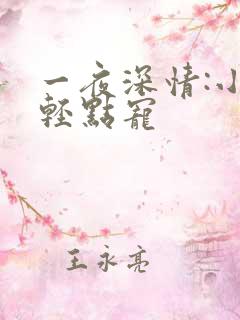 一夜深情:小
輕點寵
王永亮